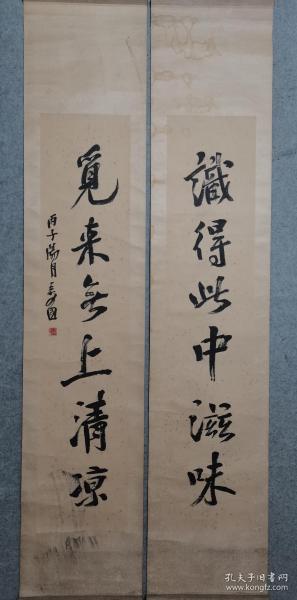 識得此中滋味
覓来無上清凉
丙子陽月
孔夫子旧书网